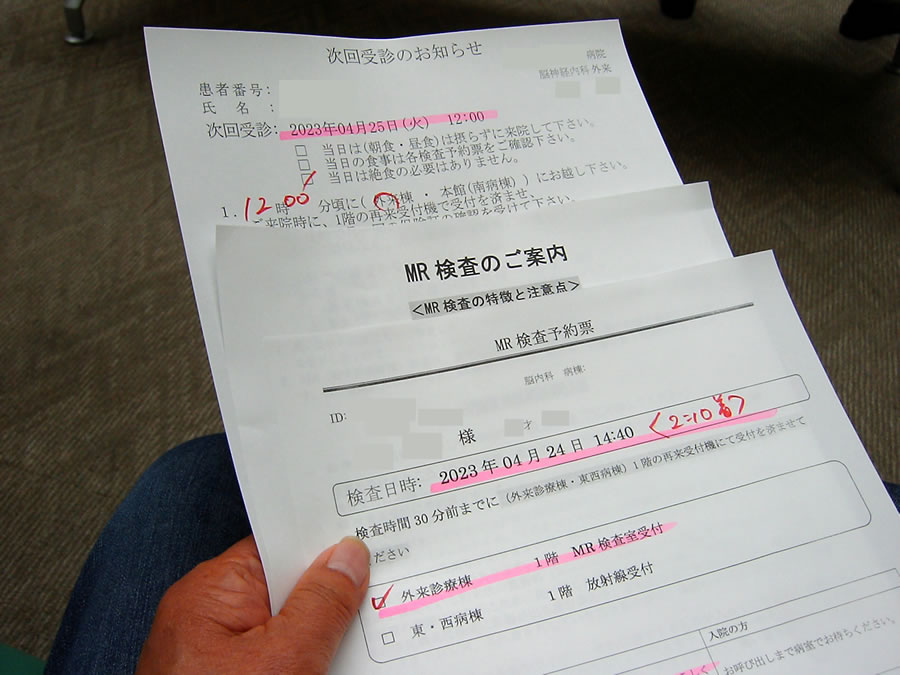 次回受診のお知らせ
病院
脳神経内科 外来
患者番号:
氏 名 :
次回受診: 2023年04月25日(火) 12:00
□ 当日は(朝食・昼食)は摂らずに来院して下さい。
□ 当日の食事は各検査予約票をご確認下さい。
☑ 当日は絶食の必要はありません。
1. 12時 00 分頃に( 外来棟 ・ 本館(南病棟) )にお越し下さい。
ご来院時に、1階の再来受付機で受付を済ませ、
の確認を受けて下さい。
MR 検査のご案内
<MR 検査の特徴と注意点>
MR 検査予約票
脳内科 病棟:
ID:
様 才
検査日時: 2023 年 04 月 24 日 14:40 〈2:10着〉
検査時間 30 分前までに (外来診療棟・東西病棟) 1 階の再来受付機にて受付を済ませて
ください
☑ 外来診療棟 1 階 MR 検査室受付
□ 東・西病棟 1 階 放射線受付
入院の方
お呼び出しまで病室でお待ちください。